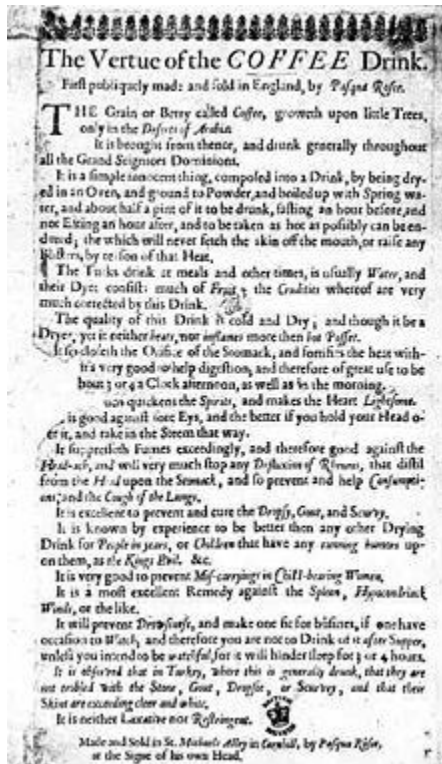 The Vertue of the COFFEE Drink.
First publiquely made and sold in England, by Pasqua Rosee.
THE Grain or Berry called Coffee, groweth upon little Trees,
only in the Deserts of Arabia.
It is brought from thence, and drunk generally throughout
all the Grand Seigniors Dominions.
It is a simple innocent thing, composed into a Drink, by being dry-
ed in an Oven, and ground to Powder, and boiled up with Spring wa-
ter, and about half a pint of it to be drunk, fasting an hour before, and
not Eating an hour after, and to be taken as hot as possibly can be en-
dured; the which will never fetch the skin off the mouth, or raise any
Blisters, by reason of that Heat.
The Turks drink at meals and other times, is usually Water, and
their Dyet consists much of Fruit, the Crudities whereof are very
much corrected by this Drink.
The quality of this Drink is cold and Dry; and though it be a
Dryer, yet it neither heats, nor inflames more then hot Posset.
It so closeth the Orifice of the Stomack, and fortifies the heat with-
it's very good to help digestion, and therefore of great use to be
bout 3 or 4 a Clock afternoon, as well as in the morning.
quickens the Spirits, and makes the Heart Lightsome.
is good against sore Eys, and the better if you hold your Head o-
er it, and take in the Steem that way.
It suppresseth Fumes exceedingly, and therefore good against the
Head-ach, and will very much stop any Defluxion of Rheums, that distil
from the Head upon the Stomack, and so prevent and help Consumpti-
ons; and the Cough of the Lungs.
It is excellent to prevent and cure the Dropsy, Gout, and Scurvy.
It is known by experience to be better then any other Drying
Drink for People in years, or Children that have any running humors up-
on them, as the Kings Evil. &c.
It is very good to prevent Mis-carryings in Child-bearing Women.
It is a most excellent Remedy against the Spleen, Hypocondriack
Winds, or the like.
It will prevent Drowsiness, and make one fit for busines, if one have
occasion to Watch, and therefore you are not to Drink of it after Supper,
unless you intend to be watchful, for it will hinder sleep for 3 or 4 hours.
It is observed that in Turkey, where this is generally drunk, that they are
not trobled with the Stone, Gout, Dropsie, or Scurvey, and that their
Skins are exceeding cleer and white.
It is neither Laxative nor Restringent.
Made and Sold in St. Michaels Alley in Cornhill, by Pasqua Rosee,
at the Signe of his own Head.